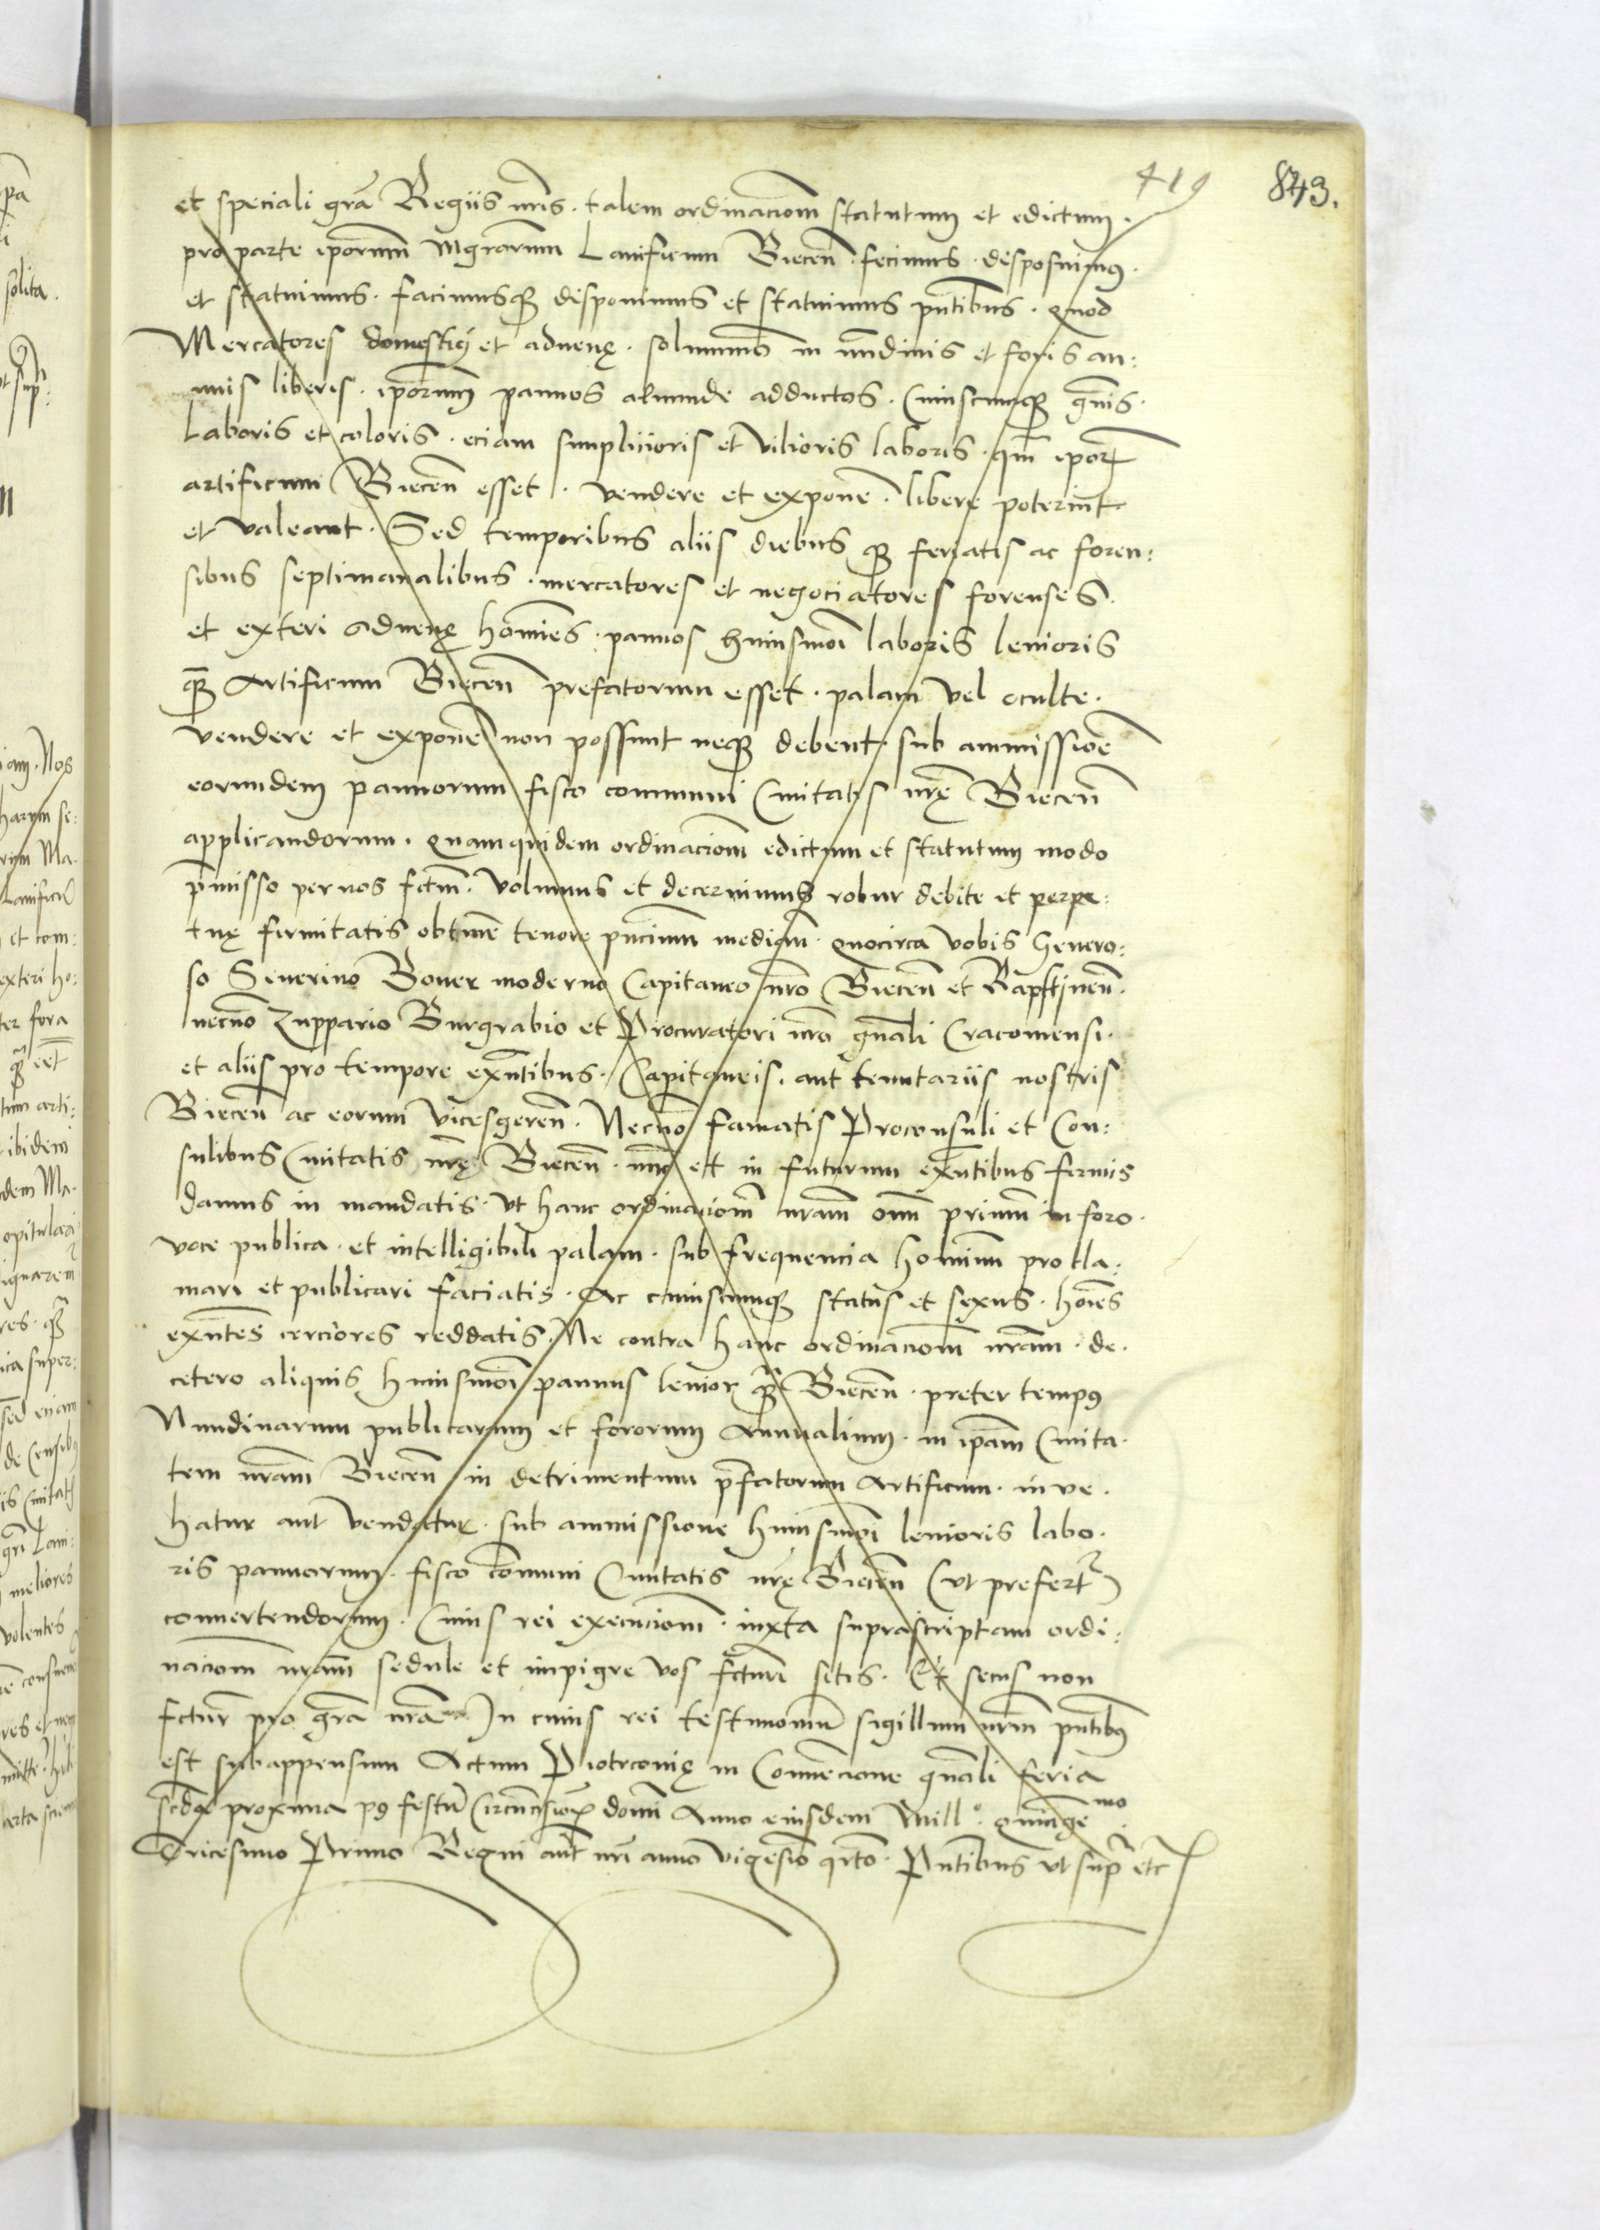 419 843.
et speciali gra Regiis nris · talem ordinaciom statutum et edictum ·
pro parte iporum Mgrorum Lanificum Biecen · fecimus · desposuimus ·
et statuimus · facimusq desponimus et statuimus pntibus · Quod
Mercatores domesticj et aduenę · solummo in nundinis et foris an:
nuis liberis · iporum pannos aliunde adductos · Cuiuscunq gnis ·
Laboris et coloris · eciam simplicioris et vilioris laboris · qm ipor
artificum Biecen esset · vendere et expone · libere poterint
et valeant · Sed temporibus aliis diebus q feriatis ac foren:
sibus septimanalibus · mercatores et negociatores forenses ·
et exteri aduenę homies · pannos huiusmoi laboris lenioris
q Artificum Biecen prefatorum esset · palam vel oculte ·
vendere et expone non possunt neq debent · sub ammissioe
eorundem pannorum fisco communi Ciuitatis nrę Biecen
applicandorum · Quamquidem ordinaciom edictum et statutum modo
pmisso per nos fctm · volumus et decernimus robur debite et perpe:
tuę firmitatis obtine tenore pncium mediam · Quocirca vobis Genero:
so Seuerino Boner moderno Capitaneo nro Biecen et Rapstjnen ·
necno Zuppario Burgrabio et Procuratori nro gnali Cracouiensi ·
et aliis pro tempore exntibus · Capitaneis · aut tenutariis nostris
Biecen ac eorum vicesgeren · Necno famatis Proconsuli et Con:
sulibus Ciuitatis nrę Biecen · nuc et in futurum exntibus firmis
damus in mandatis · Vt hanc ordinaciom nram om primum in foro ·
voce publica · et intelligibili palam · sub frequencia hominum procla:
mari et publicari faciatis · Ac cuiuscunq status et sexus · hoies
exntes cerciores reddatis · Ne contra hanc ordinaciom nram · de ·
cetero aliquis huiusmoi pannus lenior q Biecen · preter tempus
Nundinarum publicarum et fororum Annualium · in ipam Ciuita ·
tem nram Biecen in detrimentum pfatorum Artificum · inve ·
hatur aut vendatur · sub ammissione huiusmoi lenioris labo ·
ris pannorum · fisco comuni Ciuitatis nrę Biecen (vt prefert)
conuertendorum · Cuius rei execuciom · iuxta suprascriptam ordi:
naciom nram sedule et impigre vos fcturi sitis · Et secus non
fctur pro gra nra In cuius rei testimoniu sigillum nrm pntibus
est subappensum Actum Piotrconię in Conuencione gnali feria
scda proxima p9 festu Circumcisiois domi Anno eiusdem Mill° · quinge mo
Tricesimo Primo Regni aut nri anno vigesio qrto · Pntibus vt supr etc